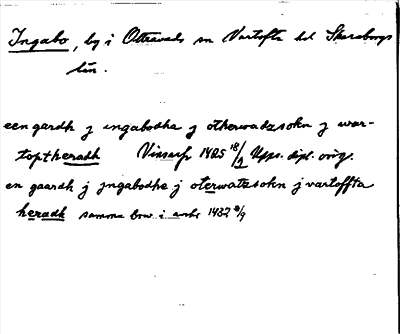 Ingabo, by i Ottravads sn Vartofta hd Skaraborgs
län.
een gardh j ingabodhe j otherwadzsokn j war-
toptheradh 1485 18/2 Upps. dipl. orig.
en gaardh j jngabodhe j oterwatzsokn j vartoffta
heradh samma brev i avskr 1482 8/9